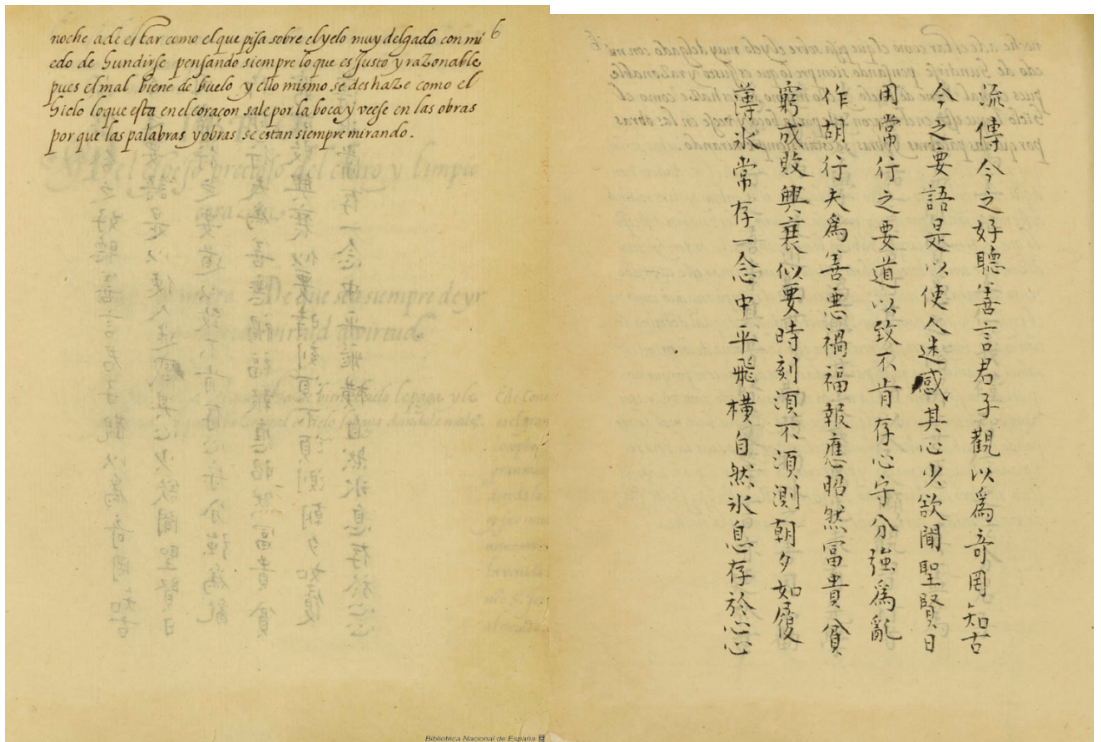 noche a de estar como el que pisa sobre el yelo muy delgado con mi
6
edo de hundirse pensando siempre lo que es justo y razonable
pues el mal biene de buelo y ello mismo se deshaze como el
hielo lo que esta en el coraçon sale por la boca y veese en las obras
por que las palabras y obras se estan siempre mirando.
流傳今之好聽善言君子觀以爲奇罔知古
今之要語是以使人迷感其心少欲聞聖賢日
用常行之要道以致不肯存心守分強爲亂
作胡行夫爲善惡禍福報應昭然冨貴貧
窮成敗興衰似要時刻湏不湏測朝夕如履
薄氷常存一念中平飛橫自然氷息存於心心
Biblioteca Nacional de España